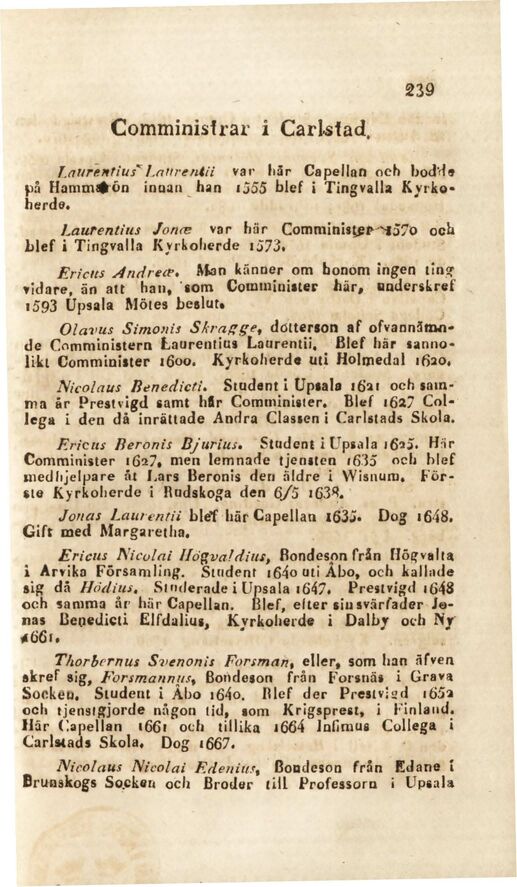 239
Comministrar i Carlstad.
Laurentius Laurentii var här Capellan och bodde
på Hammarön innan han 1555 blef i Tingvalla Kyrko-
herde.
Laurentius Jonæ var här Comminister 1570 och
blef i Tingvalla Kyrkoherde 1573.
Ericus Andreæ. Man känner om honom ingen ting
vidare, än att han, som Comminister här, underskref
1593 Upsala Mötes beslut.
Olavus Simonis Skragge, dotterson af ofvannämn-
de Comministern Laurentius Laurentii. Blef här sanno-
likt Comminister 1600. Kyrkoherde uti Holmedal 1620.
Nicolaus Benedicti. Student i Upsala 1621 och sam-
ma år Prestvigd samt här Comminister. Blef 1627 Col-
lega i den då inrättade Andra Classen i Carlstads Skola.
Ericus Beronis Bjurius. Student i Upsala 1625. Här
Comminister 1627, men lemnade tjensten 1635 och blef
medhjelpare åt Lars Beronis den äldre i Wisnum. För-
ste Kyrkoherde i Rudskoga den 6/5 1638.
Jonas Laurentii blef här Capellan 1635. Dog 1648.
Gift med Margaretha.
Ericus Nicolai Högvaldius, Bondeson från Högvalta
i Arvika Församling. Student 1640 uti Åbo, och kallade
sig då Hödius. Studerade i Upsala 1647. Prestvigd 1648
och samma år här Capellan. Blef, efter sin svärfader Jo-
nas Benedicti Elfdalius, Kyrkoherde i Dalby och Ny
1661.
Thorbernus Svenonis Forsman, eller, som han äfven
skref sig, Forsmannus, Bondeson från Forsnäs i Grava
Socken. Student i Åbo 1640. Blef der Prestvigd 1652
och tjenstgjorde någon tid, som Krigsprest, i Finland.
Här Capellan 1661 och tillika 1664 Infimus Collega i
Carlstads Skola. Dog 1667.
Nicolaus Nicolai Edenius, Bondeson från Edane i
Brunskogs Socken och Broder till Professorn i Upsala